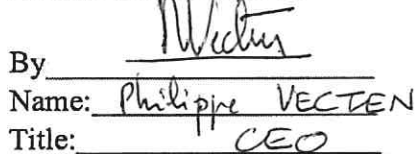 By
Name: Philippe VECTEN
Title: CEO